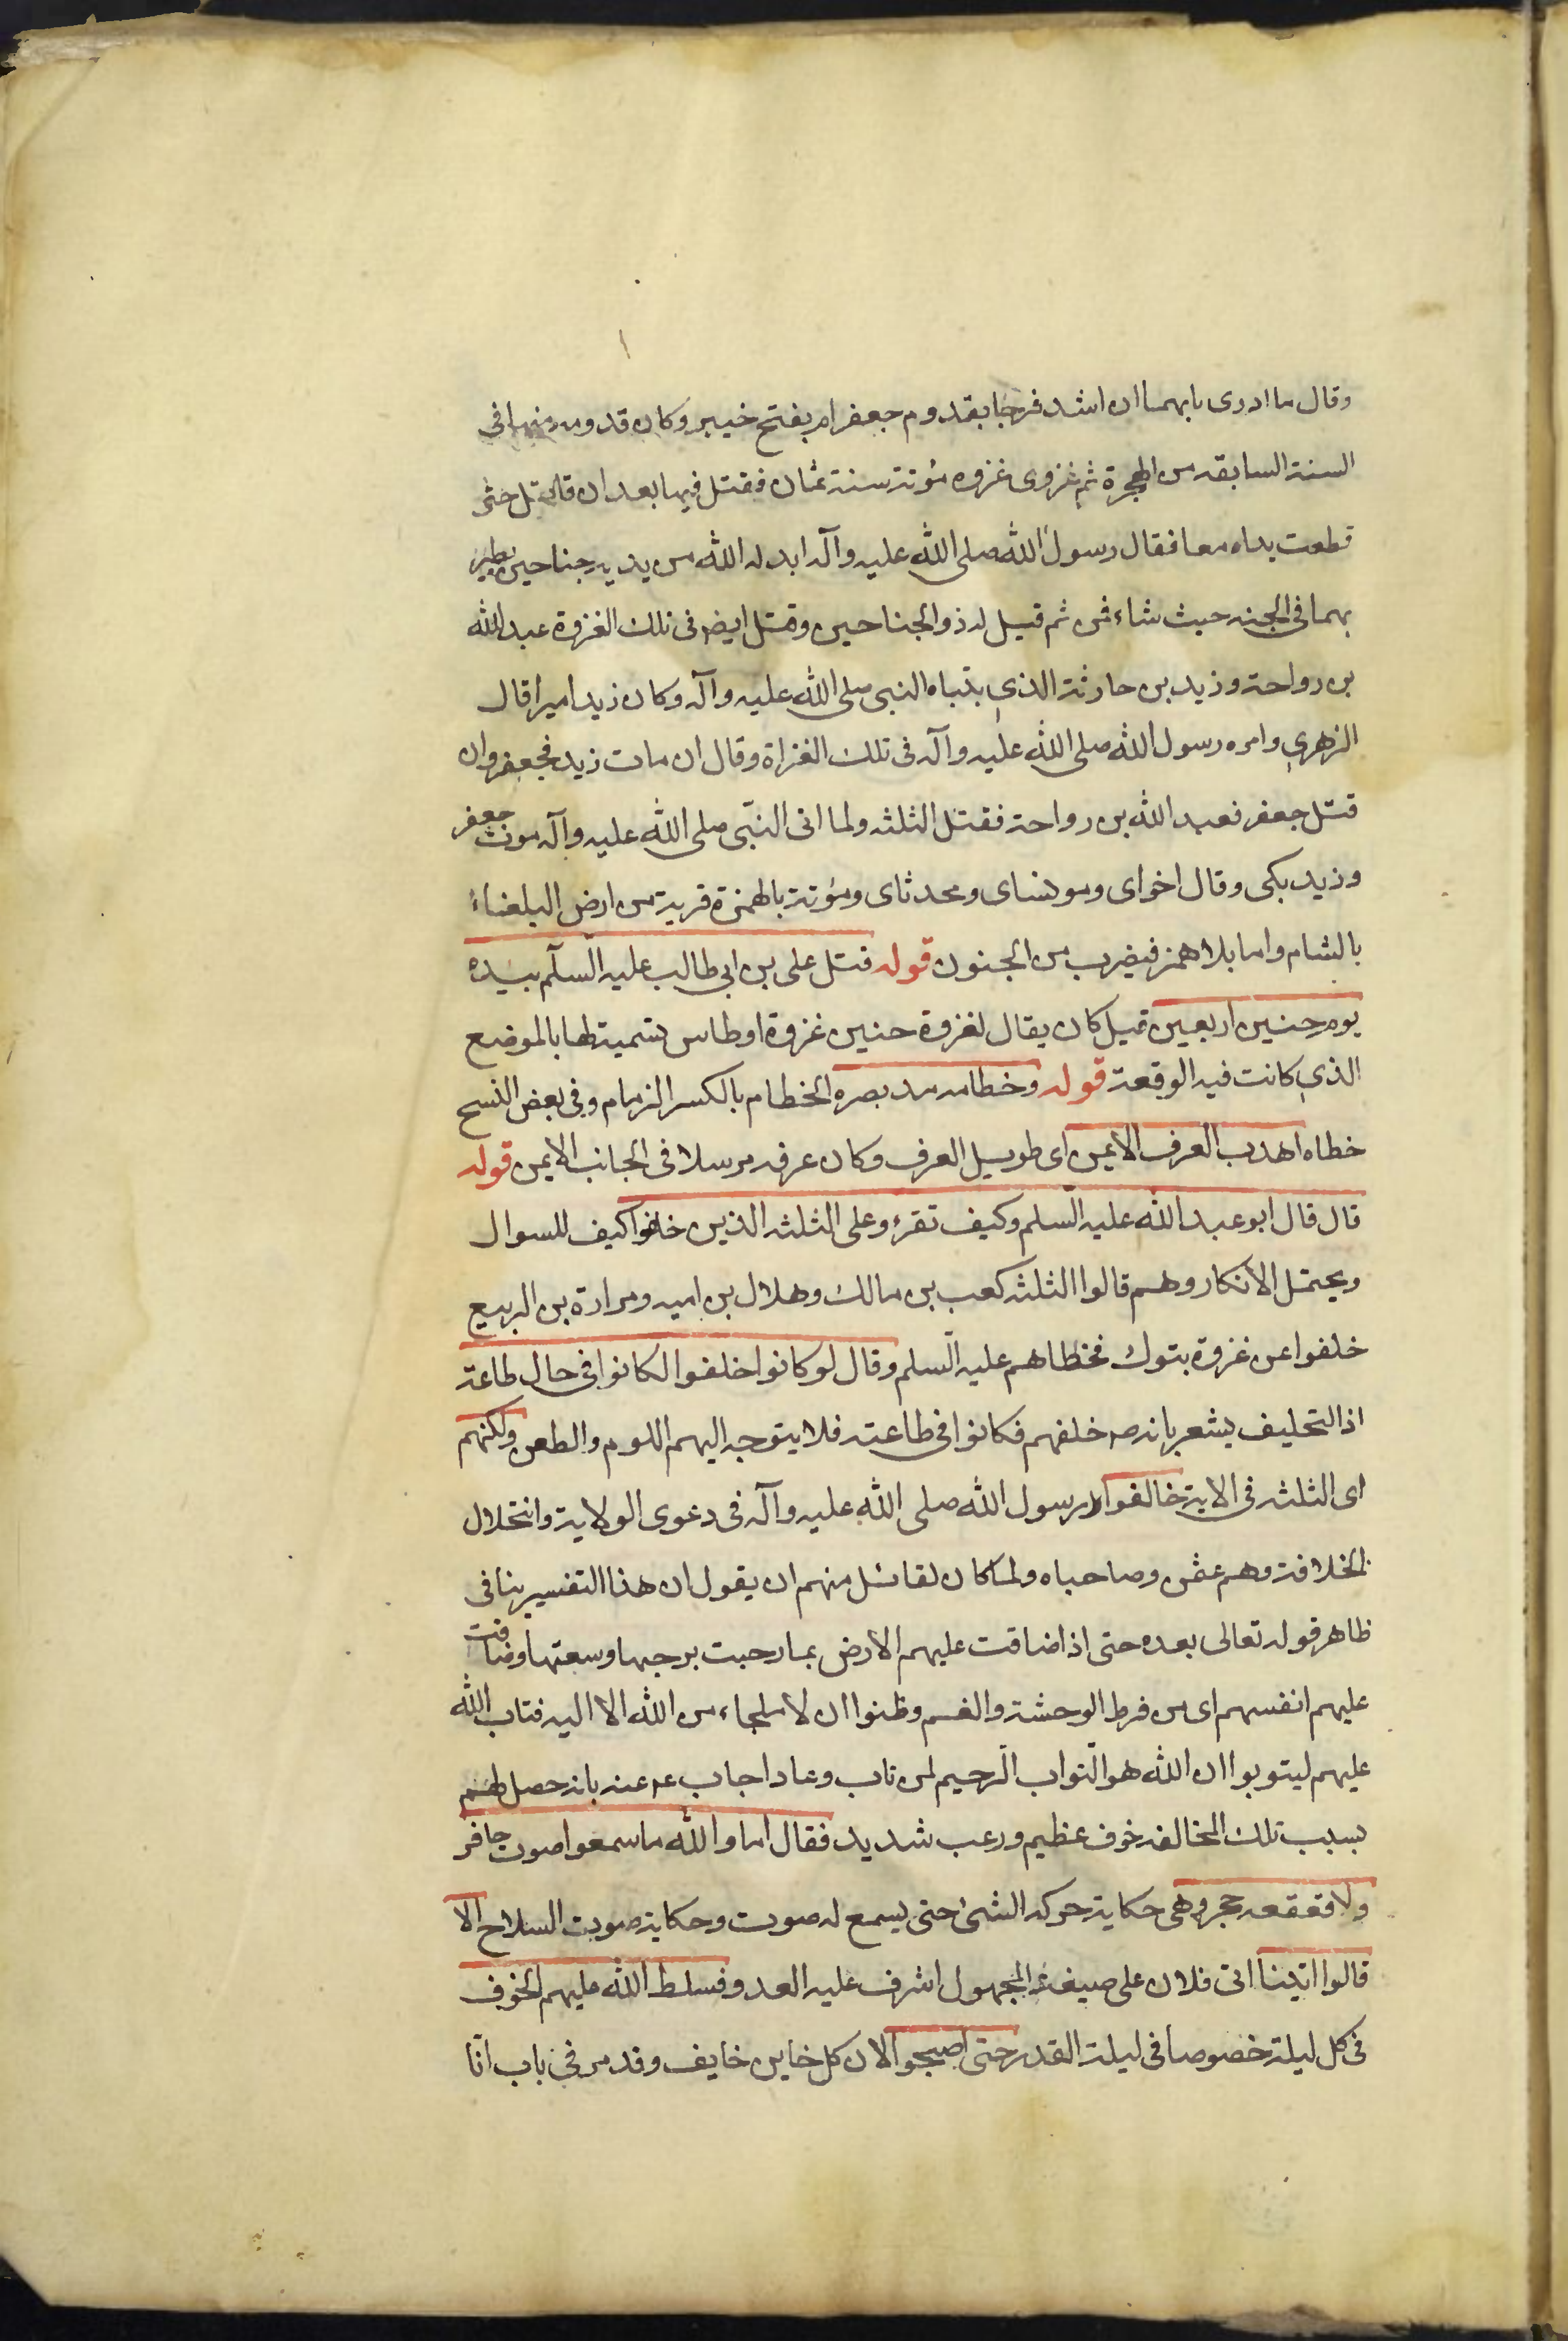 وقال ما ادرى بايهما ان اشد فرحا بقدوم جعفر ام بفتح خيبر وكان قدومه منها فى
السنة السابقه من الهجرة ثم غزوى غزوه مؤتة سنة ثمان فقتل فيها بعد ان قاتل حتى
قطعت يداه معا فقال رسول الله صلى الله عليه وآله ابدله الله من يديه جناحين يطير
بهما فى الجنه حيث شاء فمن ثم قيل له ذو الجناحين وقتل ايضا فى تلك الغزوة عبد الله
بن رواحة وزيد بن حارثة الذى بتباه النبى صلى الله عليه وآله وكان زيد اميرا قال
الزهرى وامره رسول الله صلى الله عليه وآله فى تلك الغزاة وقال ان مات زيد فجعفر وان
قتل جعفر فعبد الله بن رواحة فقتل الثلثه ولما اتى النبى صلى الله عليه وآله موت جعفر
وزيد بكى وقال اخواى ومونساى ومحدثاى ومؤتة بالهمزة قرية من ارض البلغناء
بالشام واما بلا همز فيضرب من الجنون قوله قتل على بن ابى طالب عليه السلم بيده
يوم حنين اربعين قيل كان يقال لغزوة حنين غزوة اوطاس تسمية لها بالموضع
الذى كانت فيه الوقعة قوله وخطامه مد بصره الخطام بالكسر الزمام وفى بعض النسخ
خطاه اهدب العرف الايمن اى طويل العرف وكان عرفه مرسلا فى الجانب الايمن قوله
قال قال ابو عبد الله عليه السلم وكيف تقرء وعلى الثلثه الذين خلفوا كيف للسوال
ويحتمل الانكار وهم قالوا الثلثه كعب بن مالك وهلال بن اميه ومرارة بن الربيع
خلفوا عن غزوة بتوك فخطاهم عليه السلم وقال لو كانوا خلفوا لكانوا فى حال طاعة
اذ التخليف يشعر بانه ص خلفهم فكانوا فى طاعته فلا يتوجه اليهم اللوم والطعن ولكنهم
اى الثلثه فى الاية خالفوا رسول الله صلى الله عليه وآله فى دعوى الولاية وانتحلال
الخلافة وهم عثمن وصاحباه ولما كان لقائل منهم ان يقول ان هذا التفسير ينافى
ظاهر قوله تعالى بعده حتى اذا ضاقت عليهم الارض بما رحبت برحبها وسعتها وضاقت
عليهم انفسهم اى من فرط الوحشة والغم وظنوا ان لا ملجاء من الله الا اليه فتاب الله
عليهم ليتوبوا ان الله هو التواب الرحيم لمن تاب وعاد اجاب ع عنه بانه حصل لهم
بسبب تلك المخالفه خوف عظيم ورعب شديد فقال اما والله ما سمعوا صوت حافر
ولا قعقعه حجر وهى حكاية حركه الشئ حتى يسمع له صوت وحكاية صوت السلاح الا
قالوا اتينا اتى فلان على صيغة المجهول اشرف عليه العدو فسلط الله عليهم الخوف
فى كل ليلة خصوصا فى ليلة القدر حتى اصبحوا لان كل خاين خايف وقد مر فى باب انا